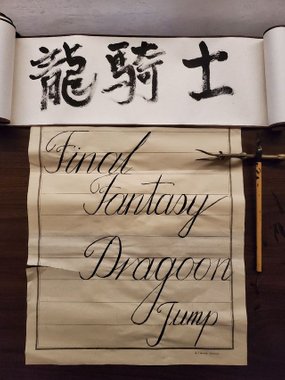 龍騎士
Final
Fantasy
Dragoon
Jump